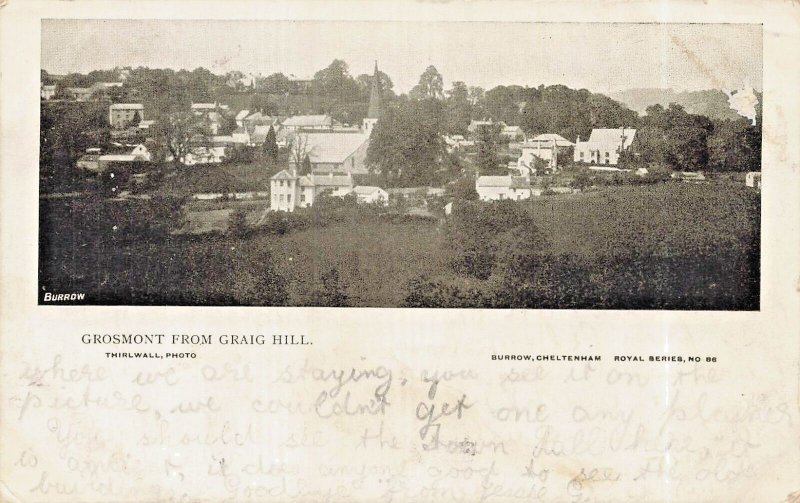 BURROW
GROSMONT FROM GRAIG HILL.
THIRLWALL, PHOTO
BURROW, CHELTENHAM ROYAL SERIES, NO 86
where we are staying, you see it on the
picture, we couldn't get one any plainer
You should see the town hall here, it
is ancient, it does anyone good to see the old
building. Goodbye from